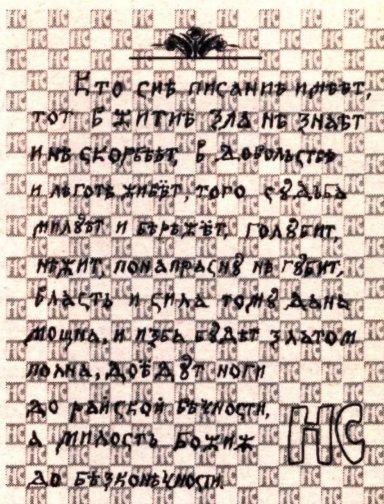 Кто сиѣ писаниѣ имѣет,
тот в житиѣ зла нѣ знаѣт
и нѣ скорбѣѣт, в довольствѣ
и лѣготѣ живѣт, того сꙋдьба
милꙋѣт и бѣрѣжёт, голꙋбит,
нѣжит, понапраснꙋ нѣ гꙋбит,
власть и сила томꙋ дана
мощна, и изба бꙋдѣт златом
полна, доѣдꙋт ноги
до райской вѣчности,
а милость божиж
до бѣзконѣчности.
НС